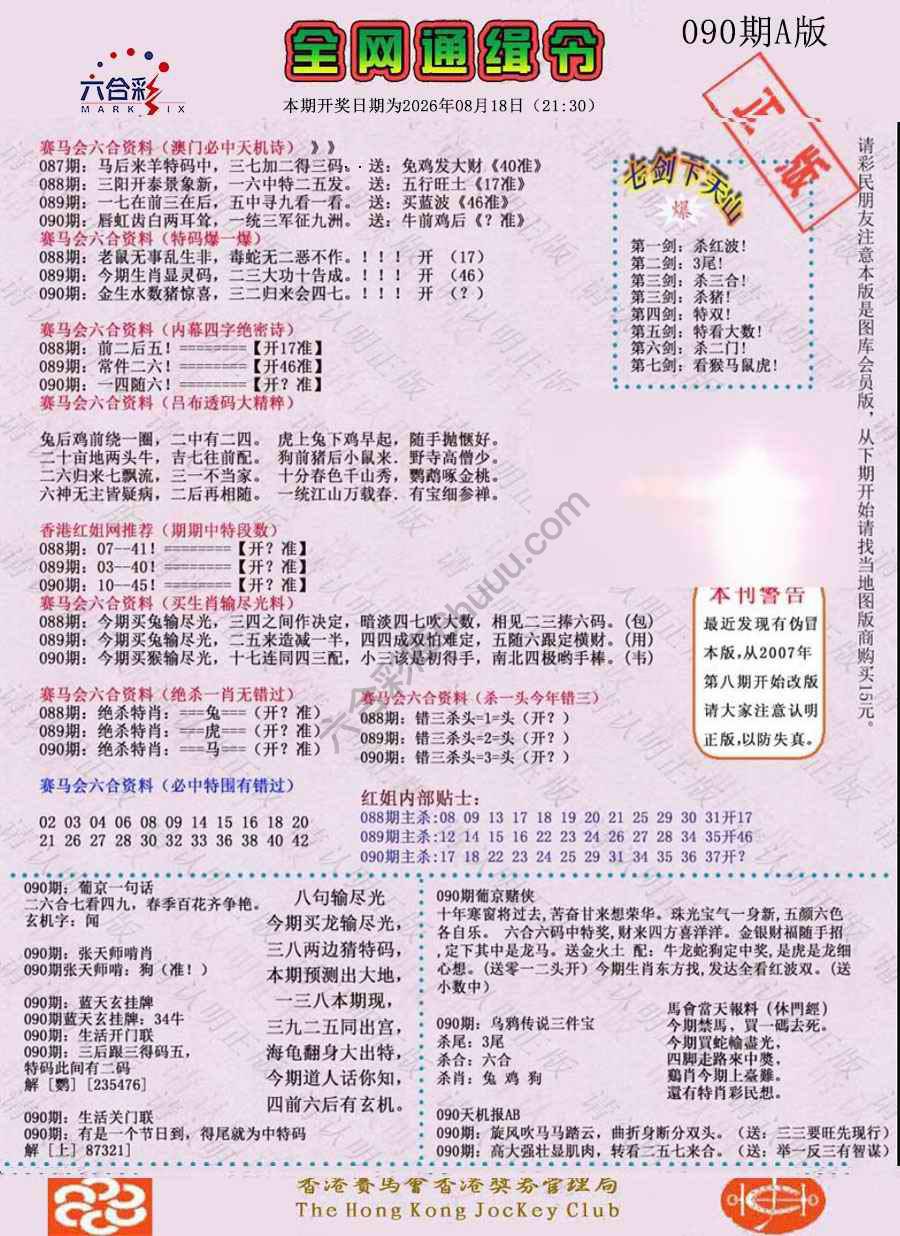 090期A版
全网通缉令
六合彩
MARK SIX
本期开奖日期为2026年08月18日（21:30）
正版
赛马会六合资料（澳门必中天机诗）》》
087期：马后来羊特码中，三七加二得三码。. 送：兔鸡发大财《40准》
088期：三阳开泰景象新，一六中特二五发。 送：五行旺土《17准》
089期：一七在前三在后，五中寻九看一看。 送：买蓝波《46准》
090期：唇虹齿白两耳耸，一统三军征九洲。 送：牛前鸡后《？准》
赛马会六合资料（特码爆一爆）
088期：老鼠无事乱生非，毒蛇无二恶不作。！！！ 开 （17）
089期：今期生肖显灵码，二三大功十告成。！！！ 开 （46）
090期：金生水数猪惊喜，三二归来会四七。！！！ 开 （？）
七剑下天山
爆
第一剑：杀红波！
第二剑：3尾！
第三剑：杀三合！
第三剑：杀猪！
第四剑：特双！
第五剑：特看大数！
第六剑：杀二门！
第七剑：看猴马鼠虎！
请彩民朋友注意本版是图库会员版，从下期开始请找当地图版商购买15元。
赛马会六合资料（内幕四字绝密诗）
088期：前二后五！========【开17准】
089期：常件二六！========【开46准】
090期：一四随六！========【开？准】
赛马会六合资料（吕布透码大精粹）
兔后鸡前绕一圈，二中有二四。 虎上兔下鸡早起，随手抛惬好。
二十亩地两头牛，吉七往前配。 狗前猪后小鼠来．野寺高僧少。
二六归来七飘流，三一不当家。 十分春色千山秀，鹦鹉啄金桃。
六神无主皆疑病，二后再相随。 一统江山万载春．有宝细参禅。
香港红姐网推荐（期期中特段数）
088期：07--41！========【开？准】
089期：03--40！========【开？准】
090期：10--45！========【开？准】
赛马会六合资料（买生肖输尽光料）
088期：今期买兔输尽光，三四之间作决定，暗淡四七吹大数，相见二三捧六码。(包)
089期：今期买羊输尽光，二五来造减一半，四四成双怕难定，五随六跟定横财。(用)
090期：今期买猴输尽光，十七连同四三配，小三该是初得手，南北四极哟手棒。(韦)
本刊警告
最近发现有伪冒
本版,从2007年
第八期开始改版
请大家注意认明
正版,以防失真。
赛马会六合资料（绝杀一肖无错过）
088期：绝杀特肖：===兔===（开？准）
089期：绝杀特肖：===虎===（开？准）
090期：绝杀特肖：===马===（开？准）
赛马会六合资料（杀一头今年错三）
088期：错三杀头=1=头（开？）
089期：错三杀头=2=头（开？）
090期：错三杀头=3=头（开？）
赛马会六合资料（必中特围有错过）
02 03 04 06 08 09 14 15 16 18 20
21 26 27 28 30 32 33 36 38 40 42
红姐内部贴士：
088期主杀:08 09 13 17 18 19 20 21 25 29 30 31开17
089期主杀:12 14 15 16 22 23 24 26 27 28 34 35开46
090期主杀:17 18 22 23 24 25 29 31 34 35 36 37开？
090期：葡京一句话
二六合七看四九，春季百花齐争艳。
玄机字：闻
090期：张天师啃肖
090期张天师啃：狗（准！）
090期：蓝天玄挂牌
090期蓝天玄挂牌：34牛
090期：生活开门联
090期：三后跟三得码五，
特码此间有二码
解［鹦］[235476]
090期：生活关门联
090期：有是一个节日到，得尾就为中特码
解［上］87321]
八句输尽光
今期买龙输尽光，
三八两边猜特码，
本期预测出大地，
一三八本期现，
三九二五同出宫，
海龟翻身大出特，
今期道人话你知，
四前六后有玄机。
090期葡京赌侠
十年寒窗将过去,苦奋甘来想荣华。珠光宝气一身新,五颜六色
各自乐。 六合六码中特奖,财来四方喜洋洋。金银财福随手招
,定下其中是龙马。送金火土 配：牛龙蛇狗定中奖,是虎是龙细
心想。(送零一二头开）今期生肖东方找,发达全看红波双。(送
小数中)
090期：乌鸦传说三件宝
杀尾：3尾
杀合：六合
杀肖：兔 鸡 狗
馬會當天報料（休門經）
今期禁馬、買一碼去死。
今期買蛇輸盡光，
四脚走路來中奬，
鷄肖今期上臺難。
還有特肖彩民想。
090天机报AB
090期：旋风吹马马踏云，曲折身断分双头。（送：三三要旺先现行）
090期：高大强壮显肌肉，转看二五七来合。（送：举一反三有智谋）
香港赛马會香港獎券管理局
The Hong Kong JocKey Club